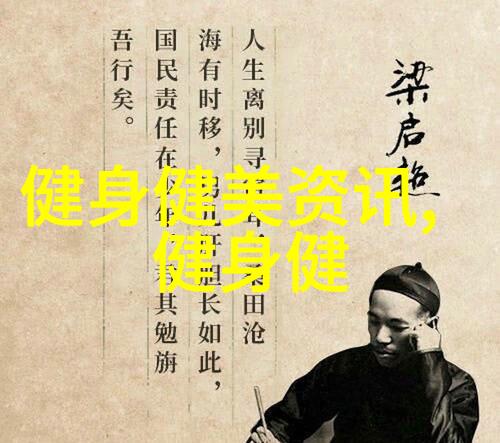 人生离别寻
田沧
海有时移，
胆长如此，
国民责任在少年
其勉旃
吾行矣。
梁启超
健身健美资讯,
健身健